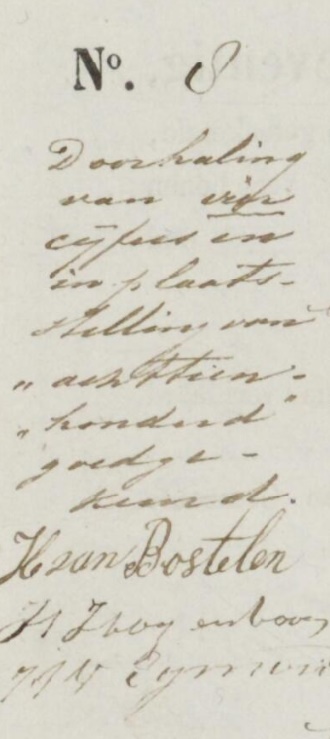 No. 8
Doorhaling
van vier
cijfers en
in plaats-
stelling van
„ achttien-
„ honderd "
goedge-
keurd.
H van Bostelen